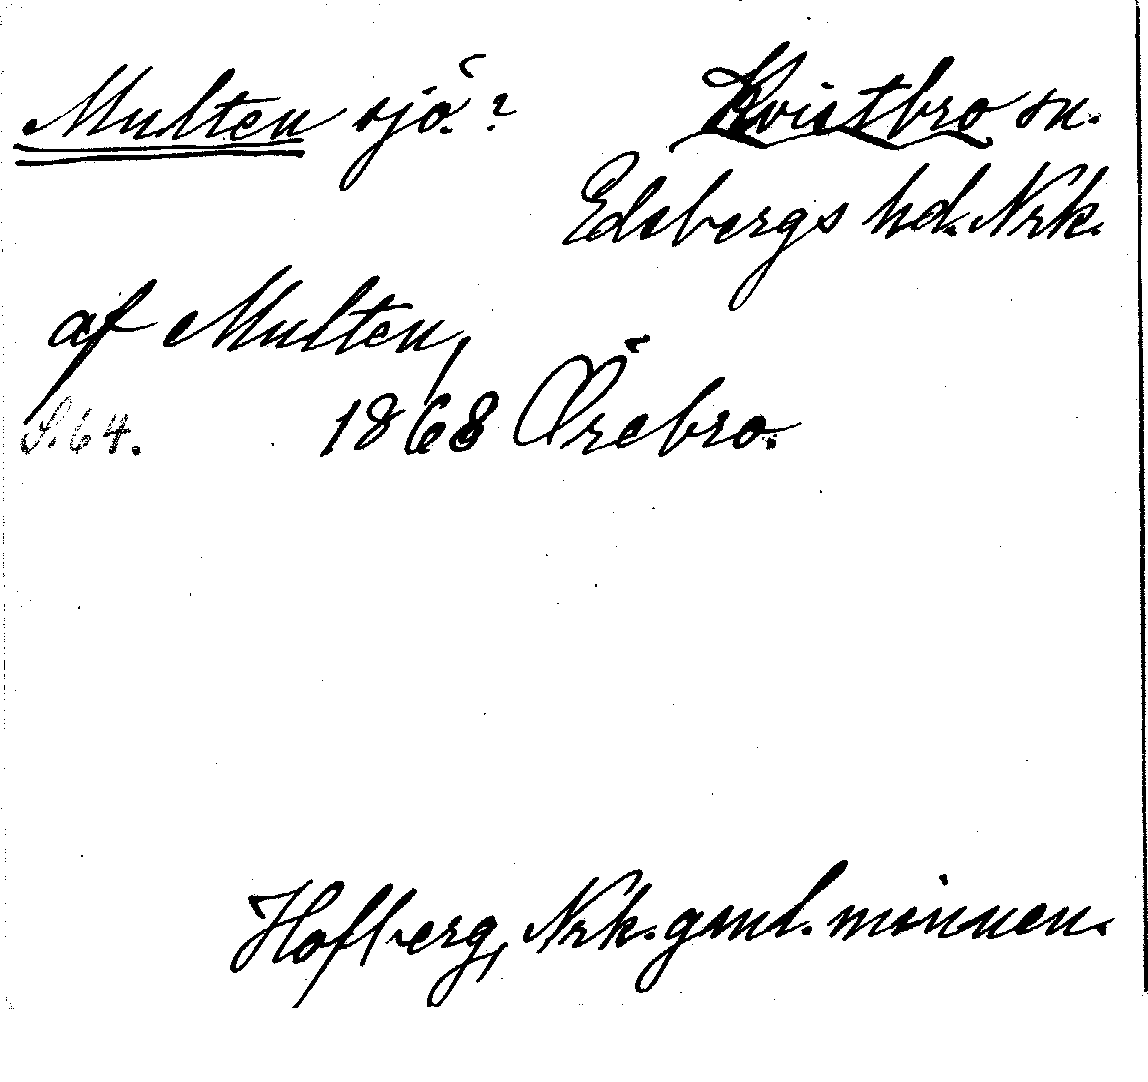 Multen sjö? Kvistbro sn.
Edsbergs hd. Nrk.
af Multen,
S. 64. 1868 Örebro.
Hofberg, Nrk. gml. minnen.